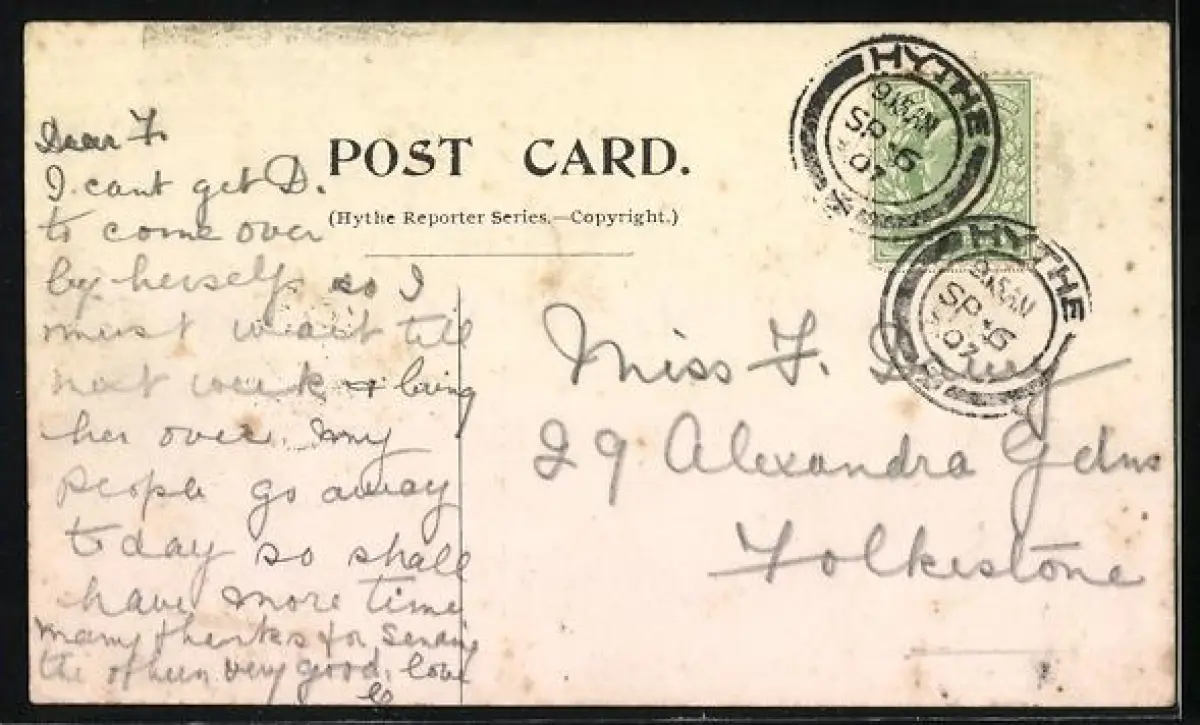 POST CARD.
(Hythe Reporter Series.—Copyright.)
HYTHE
SP 6
07
HYTHE
SP 6
07
Dear F.
I cant get D.
to come over
by herself so I
must wait till
next week & bring
her over. My
people go away
today so shall
have more time
Many thanks for sending
the very good. love
Miss F.
29 Alexandra Gdns
Folkestone